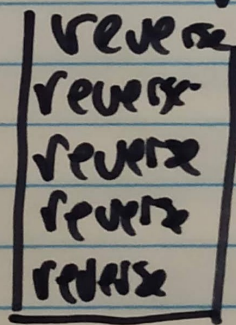 reverse
reverse
reverse
reverse
reverse